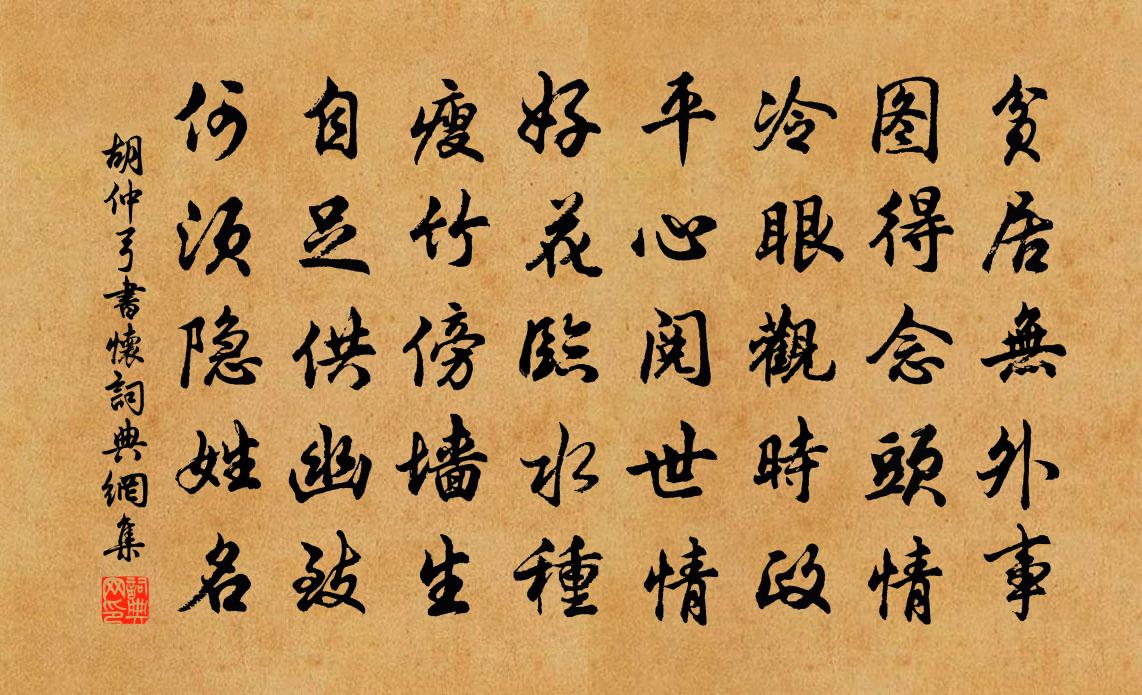 贫居無外事
图得念頭情
冷眼觀時政
平心阅世情
好花臨水種
瘦竹傍墙生
自足供幽致
何须隐姓名
胡仲弓書懷詞典網集
詞典网印